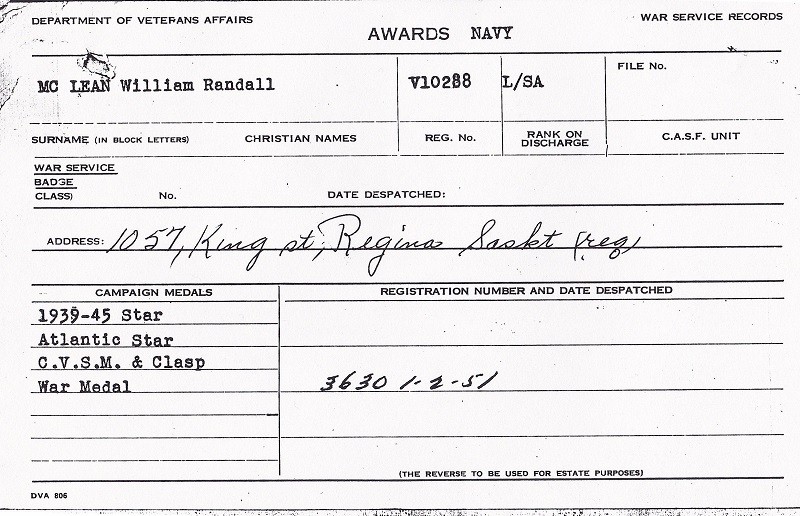 DEPARTMENT OF VETERANS AFFAIRS WAR SERVICE RECORDS
AWARDS NAVY
FILE No.
MC LEAN William Randall V10288 L/SA
SURNAME (IN BLOCK LETTERS) CHRISTIAN NAMES REG. No. RANK ON DISCHARGE C.A.S.F. UNIT
WAR SERVICE
BADGE
CLASS) No. DATE DESPATCHED:
ADDRESS: 1057, King st, Regina Saskt (reg)
CAMPAIGN MEDALS REGISTRATION NUMBER AND DATE DESPATCHED
1939-45 Star
Atlantic Star
C.V.S.M. & Clasp
War Medal 3630 1-2-51
(THE REVERSE TO BE USED FOR ESTATE PURPOSES)
DVA 806